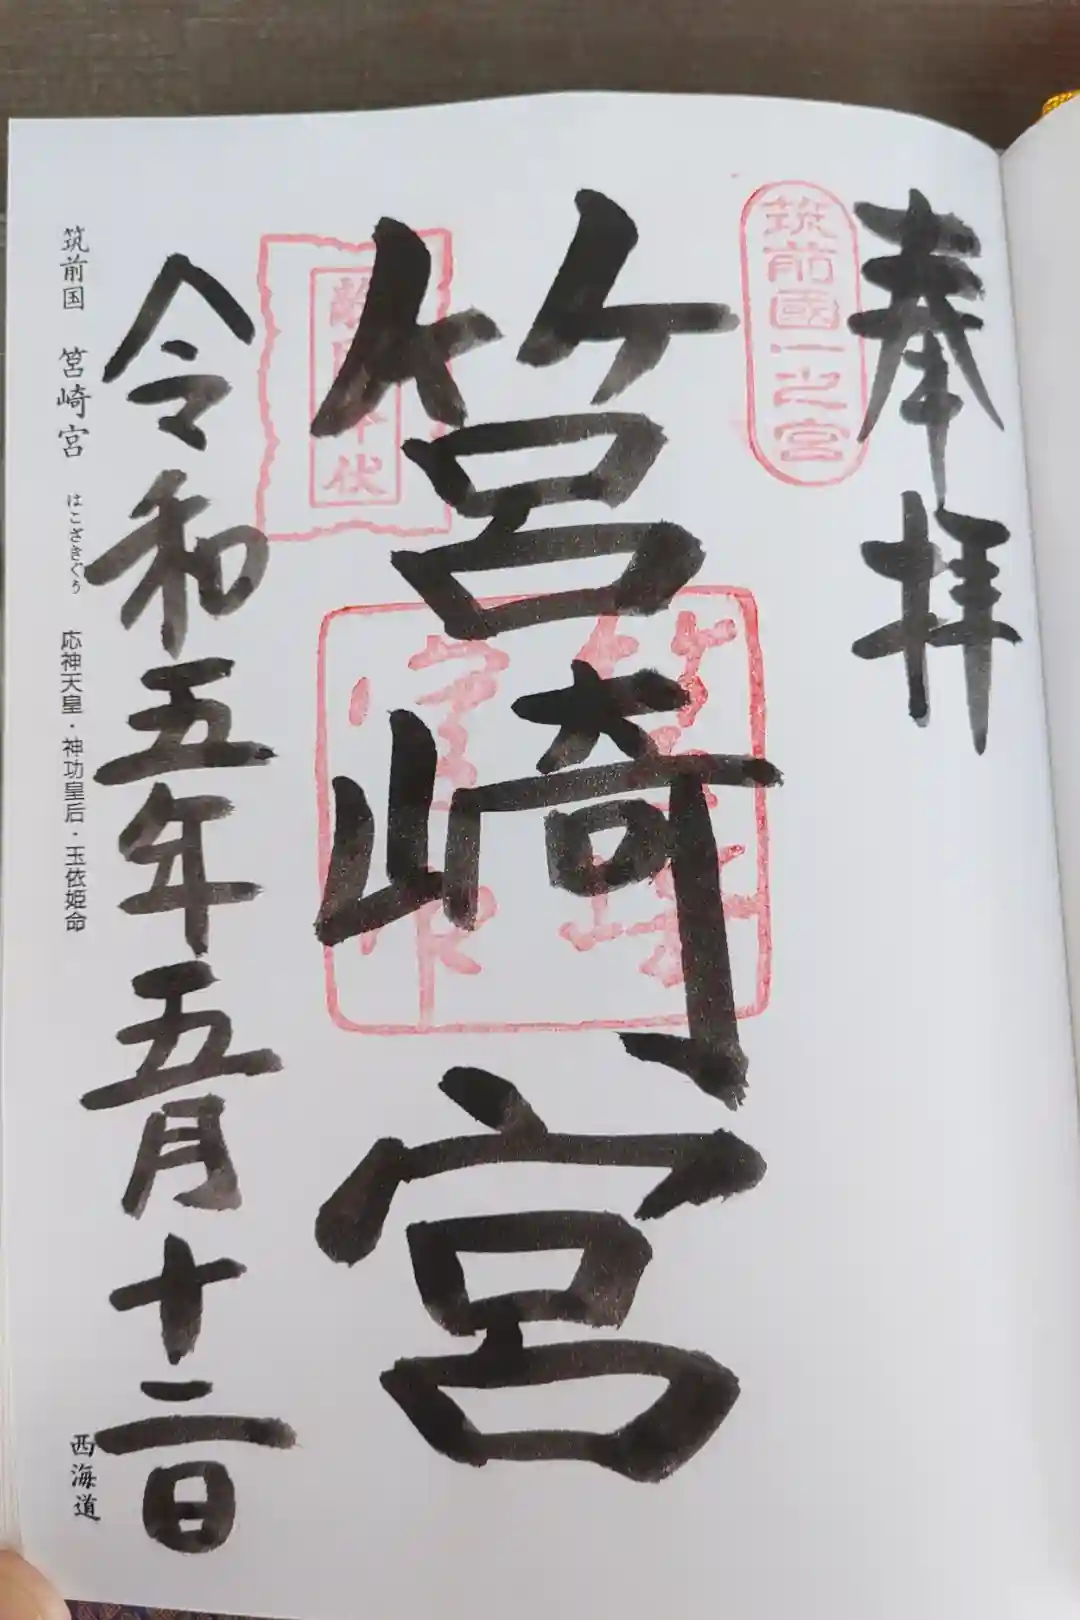 奉拝
筑前國一之宮
筥崎宮
敵国降伏
令和五年五月十二日
筑前国 筥崎宮 はこざきぐう 応神天皇・神功皇后・玉依姫命 西海道